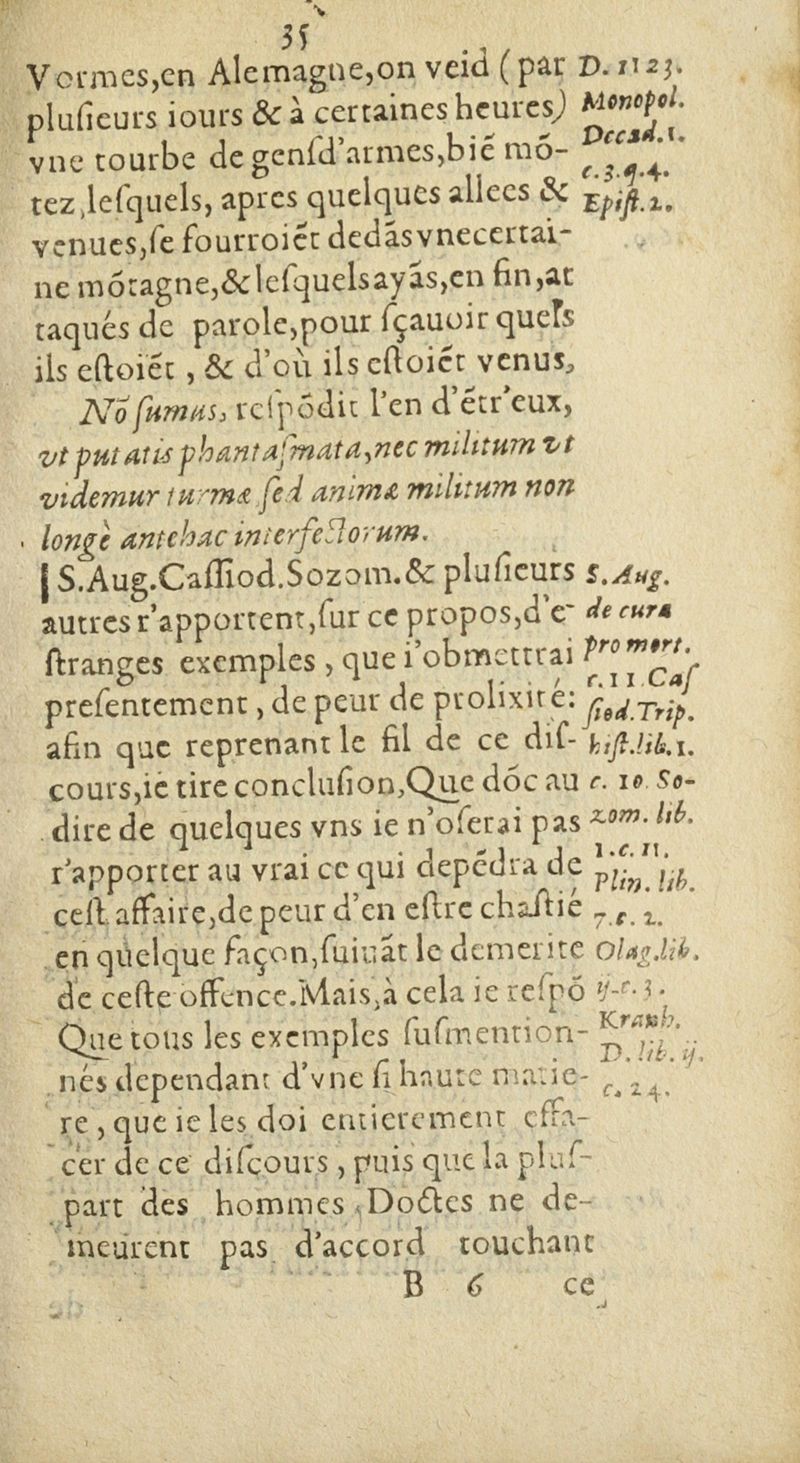 35
Vormes,en Alemagne,on veid (par
plusieurs iours & à certaines heures)
vne tourbe de gensd'armes,biē mō-
tez,lesquels, apres quelques allees &
venues,se fourroiēt dedāsvnecertai-
ne mōtagne,&lesquelsayās,en fin,at
taqués de parole,pour sçauoir quels
ils estoiēt , & d'où ils estoiēt venus,
Nō sumus, respōdit l'en d'ētr'eux,
vt putatis phantasmata,nec militum vt
videmur turmæ sed animæ militum non
longè antehac interfectorum.
[ S.Aug.Cassiod.Sozom.& plusieurs
autres r'apportent,sur ce propos,d'e-
stranges exemples , que i'obmettrai
presentement , de peur de prolixité:
afin que reprenant le fil de ce dis-
cours,ie tire conclusion,Que dōc au
dire de quelques vns ie n'oserai pas
r'apporter au vrai ce qui depēdra de
cest affaire,de peur d'en estre chastié
en quelque façon,suiuāt le demerite
de ceste offence.Mais,à cela ie respō
Que tous les exemples susmention-
nés dependant d'vne si haute matie-
re , que ie les doi entierement effa-
cer de ce discours , puis que la plus-
part des hommes Doctes ne de-
meurent pas d'accord touchant
B 6 ce
D. 1123.
Monopol.
Decad.1.
c.3.q.4.
Epist.2.
S.Aug.
de cura
pro mort.
c.11 Cas
siod.Trip.
hist.lib.1.
c. 10. So-
zom. lib.
1.c.11.
Plin. lib.
7.c.2.
Olag.lib.
ij.c.3.
Krantz.
D.lib.ij.
c.24.